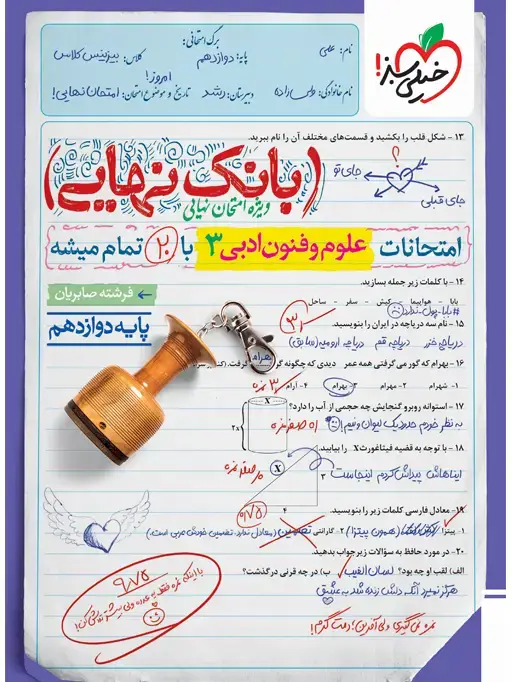 برگ امتحانی:
نام: علمی
پایه: دوازدهم
کلاس: بیزینس کلاس
نام خانوادگی: ولی زاده
دبیرستان: رشد
امروز!
تاریخ و موضوع امتحان: امتحان نهایی!
خیلی سبز!
۱۳ - شکل قلب را بکشید و قسمت‌های مختلف آن را نام ببرید.
؟
جای تو
جای قبلی
(بانک نهایی)
ویژه امتحان نهایی
امتحانات علوم و فنون ادبی ۳ با ۲۰ تمام میشه
← فرشته صابریان
پایه دوازدهم
۱۴ - با کلمات زیر جمله بسازید.
بابا - هواپیما - کیش - سفر - ساحل
#بابا-پول-نداره
۱۵ - نام سه دریاچه در ایران را بنویسید.
دریاچه خزر دریاچه قم دریاچه ارومیه (سابق)
۱۶ - بهرام که گور می‌گرفتی همه عمر دیدی که چگونه گور بهرام گرفت.
۱- شهرام ۲- مهرام ۳- بهرام ۴- آرام
۱۷ - استوانه روبرو گنجایش چه حجمی از آب را دارد؟
X
2X
به نظر خودم حدود یک لیوان و نیم!
۱۸ - با توجه به قضیه فیثاغورث X را بیابید.
X
۳
۴
ایناهاش پیداش کردم اینجاست
۰/۷۵
۱۹ - معادل فارسی کلمات زیر را بنویسید.
۱- پیتزا (همون پیتزا) ۲- گارانتی تضمین (معادل ندارد، تضمین خودش عربی است.)
۲۰ - در مورد حافظ به سؤالات زیر جواب بدهید.
الف) لقب او چه بود؟ لسان الغیب ب) در چه قرنی درگذشت؟
هرگز نمیرد آنکه دلش زنده شد به عشق
۹/۷۵